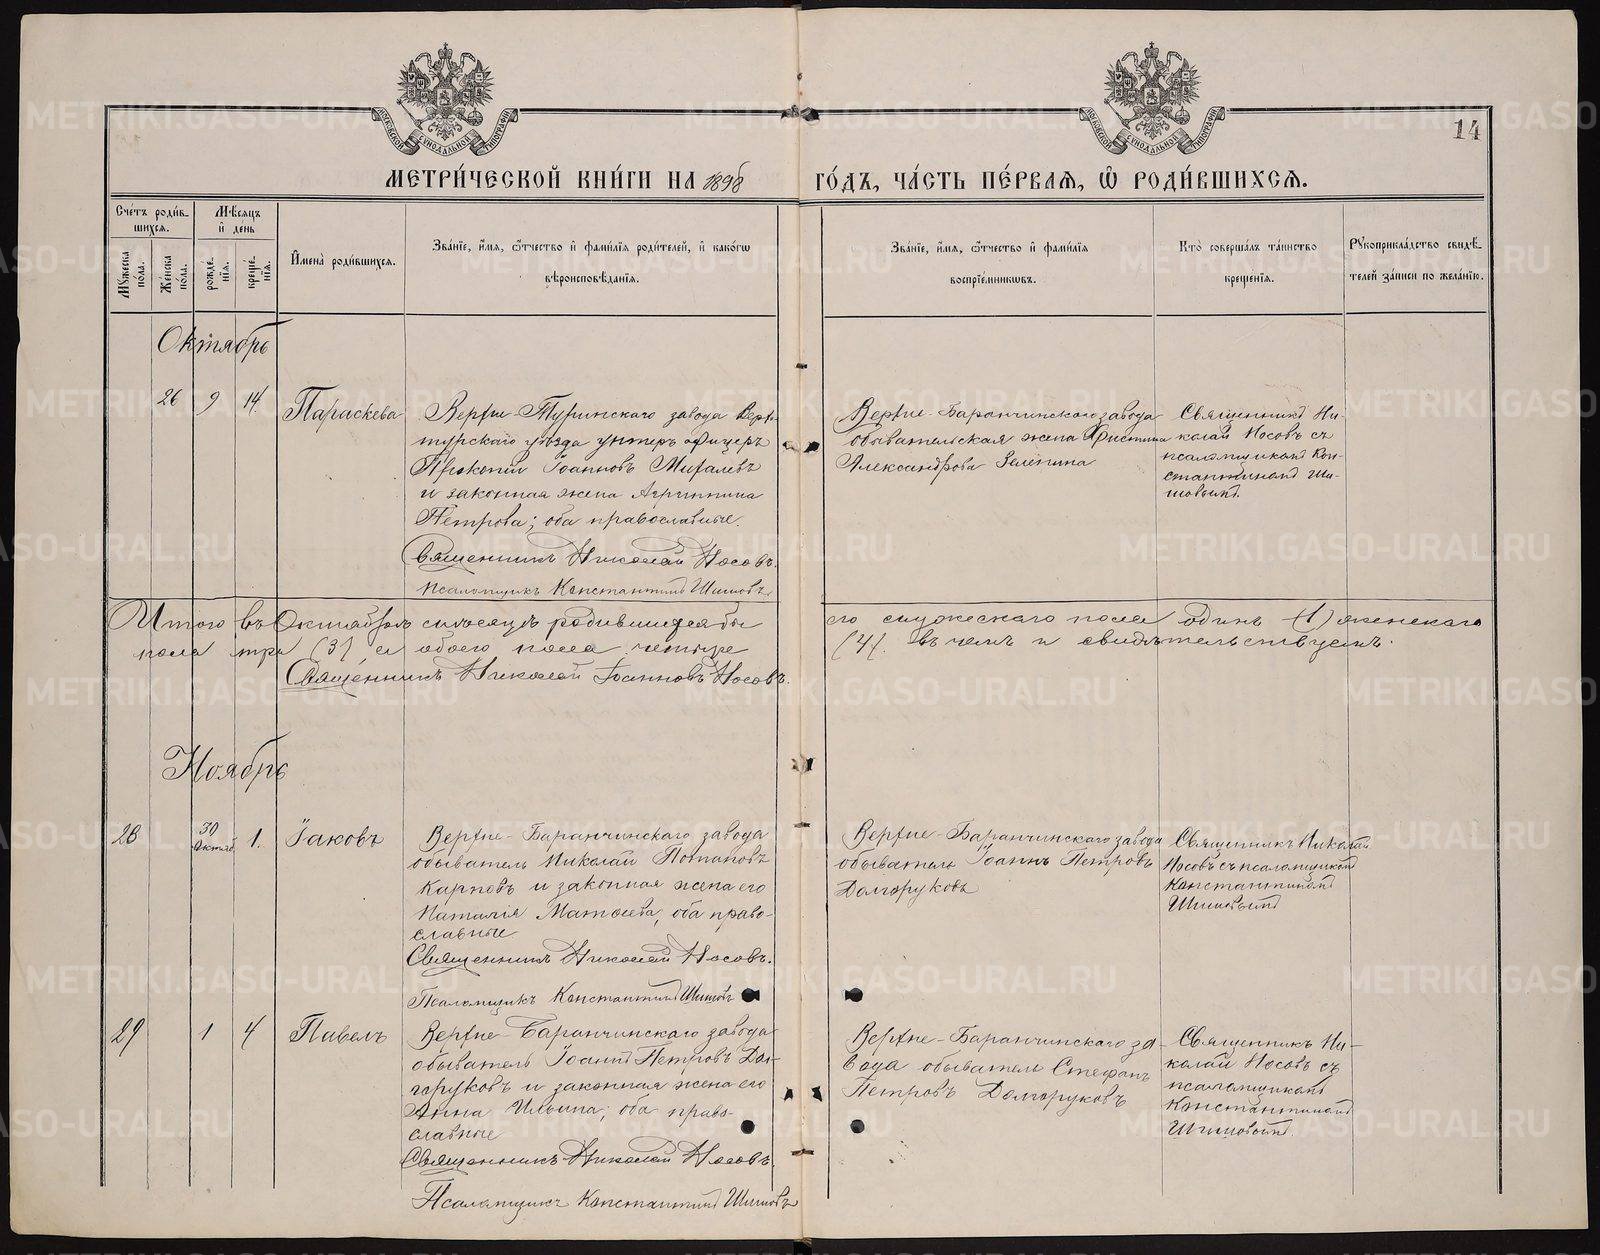 МОСКОВСКОЙ СѴНОДАЛЬНОЙ ТИПОГРАФІИ
МОСКОВСКОЙ СѴНОДАЛЬНОЙ ТИПОГРАФІИ
14
МЕТРИ́ЧЕСКОЙ КНИ́ГИ НА 1898 ГО́ДЪ, ЧА́СТЬ ПЕ́РВАѦ, Ѽ РОДИ́ВШИХСѦ.
Сче́тъ роди́в-
шихсѧ.
Мꙋжеска по́ла.
Же́нска по́ла.
Мѣ́сѧцъ
и҆ де́нь
рожде́-
нїѧ.
креще́-
нїѧ.
И҆мена̀ роди́вшихсѧ.
Зва́нїе, и҆́мѧ, ѻ҆́тчество и҆ фами́лїѧ роди́телей, и҆ како́гѡ
вѣроисповѣ́данїѧ.
Зва́нїе, и҆́мѧ, ѻ҆́тчество и҆ фами́лїѧ
воспрїе́мникѡвъ.
Кто̀ соверша́лъ та́инство
креще́нїѧ.
Рꙋкоприкла́дство свидѣ́-
телей за́писи по жела́нїю.
Октябрь
26 9 14. Параскева
Верхне-Туринскаго завода Верхо-
турскаго уѣзда унтеръ офицеръ
Прокопій Іоанновъ Михалевъ
и законная жена Агриппина
Петрова; оба православные.
Священникъ Николай Носовъ.
Псаломщикъ Константинъ Шишовъ
Верхне-Баранчинскаго завода
обывательская жена Христина
Александрова Зеленина
Священникъ Ни-
колай Носовъ съ
псаломщикомъ Кон-
стантиномъ Ши-
шовымъ.
Итого въ Октябрѣ мѣсяцѣ родившихся бы
ло мужескаго пола одинъ (1) женскаго
пола три (3), а обоего пола четыре
(4). въ чемъ и свидѣтельствуемъ.
Священникъ Николай Іоанновъ Носовъ.
Ноябрь
28 30 Октяб. 1. Іаковъ
Верхне-Баранчинскаго завода
обыватель Николай Потаповъ
Карповъ и законная жена его
Наталія Матѳеева, оба право-
славные
Священникъ Николай Носовъ.
Псаломщикъ Константинъ Шишовъ
Верхне-Баранчинскаго завода
обыватель Іоаннъ Петровъ
Долгоруковъ
Священникъ Николай
Носовъ съ псаломщикомъ
Константиномъ
Шишовымъ
29 1 4 Павелъ
Верхне-Баранчинскаго завода
обыватель Іоаннъ Петровъ Дол-
горуковъ и законная жена его
Анна Ильина; оба право-
славные
Священникъ Николай Носовъ.
Псаломщикъ Константинъ Шишовъ
Верхне-Баранчинскаго за-
вода обыватель Стефанъ
Петровъ Долгоруковъ
Священникъ Ни-
колай Носовъ съ
псаломщикомъ
Константиномъ
Шишовымъ.
METRIKI.GASO-URAL.RU